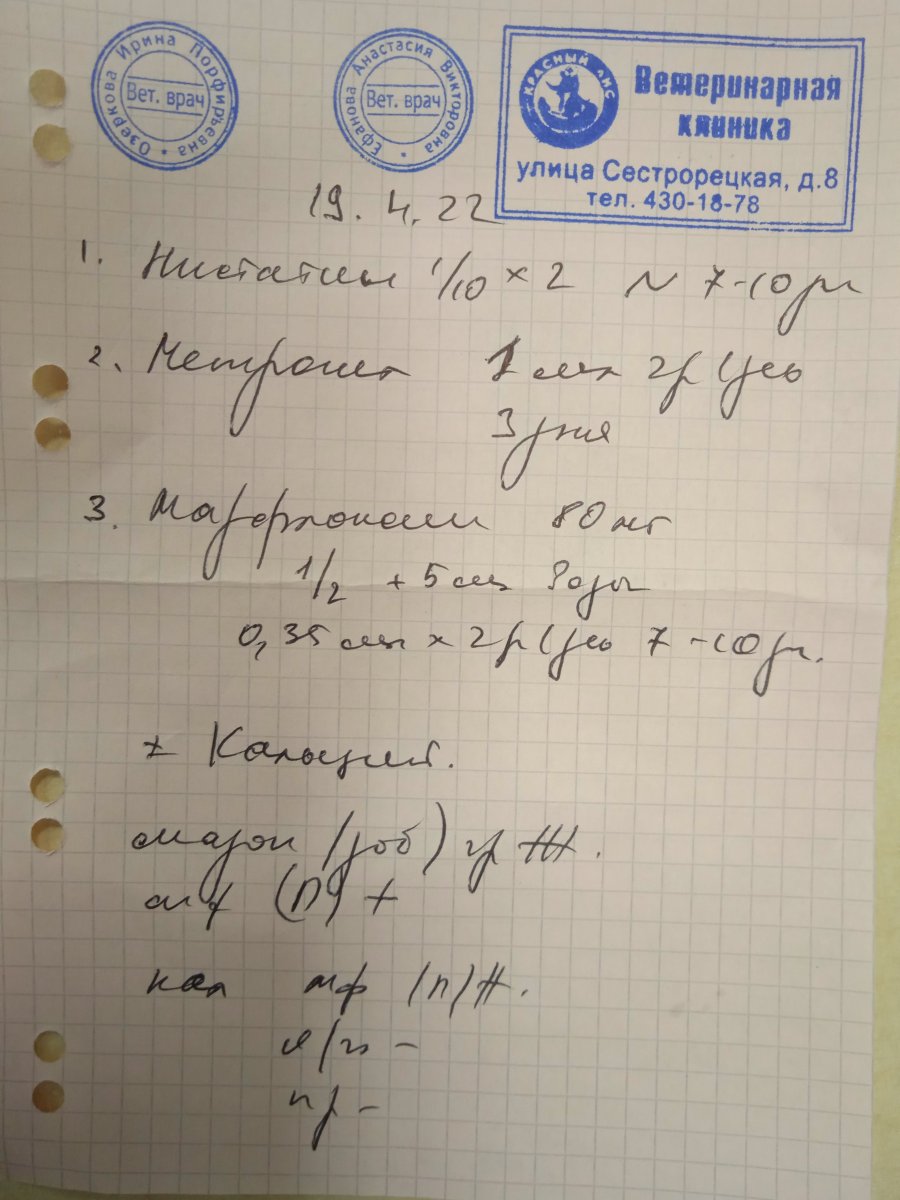 Озеркова Ирина Порфирьевна
Вет. врач
Ефанова Анастасия Викторовна
Вет. врач
КРАСНЫЙ ЛИС
Ветеринарная
клиника
улица Сестрорецкая, д.8
тел. 430-18-78
19.4.22
1. Нистатин 1/10 × 2 ~ 7-10 дн
2. Метрогил 1 мл 2р/день
3 дня
3. Марфлоксин 80 мг
1/2 + 5 мл воды
0,35 мл × 2р/день 7-10 дн.
+ Кальций.
мазок (зоб) гр ++.
(п) +
кал мф (п) ++.
я/г -
пр -